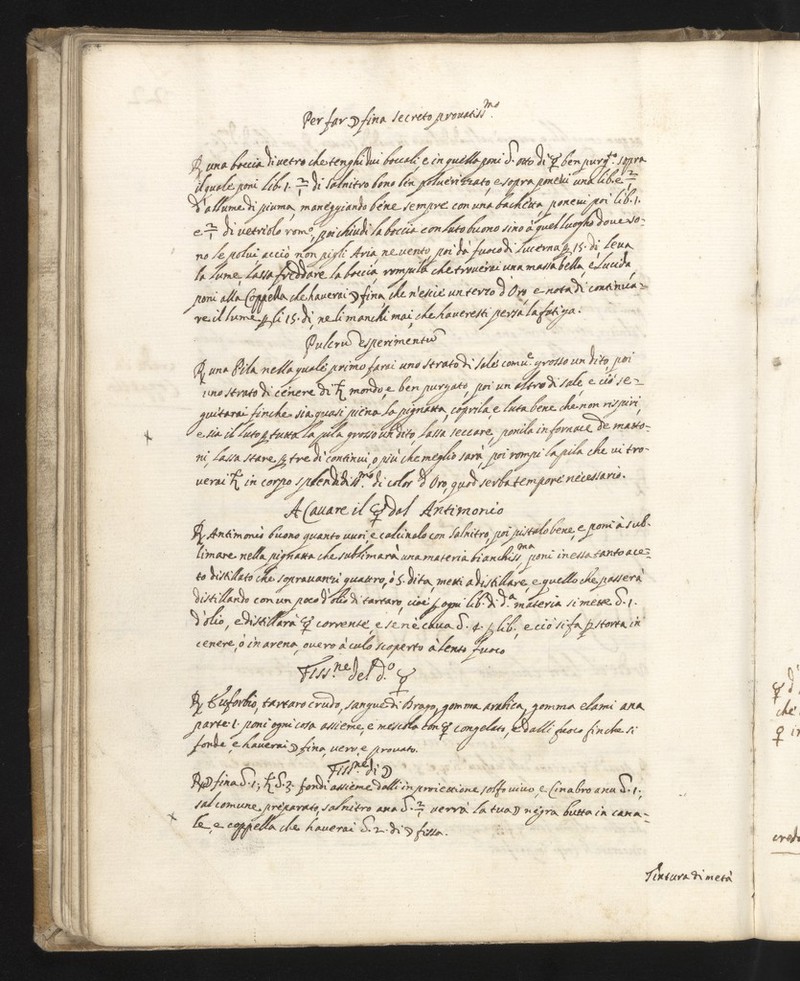 Per far ☽ fina secreto prouatiss.mo
℞ una boccia di vetro che tenghi dui boccali e in quella poni ℥. otto di ☿ ben purg.to sopra
il quale poni lib. 1. 2/1 di salnitro bono ben poluerizzato, e sopra poneui una lib. e 2/1
d'allume di piuma, maneggiando bene sempre con una bachetta, poneui poi lib. 1.
e 2/1 di vetriolo rom.o, poi chiudi la boccia con luto buono sino à quel luogho doue so-
no le polui acciò non pigli Aria, ne vento, poi dà fuoco di lucerna p 15. di leua
la lume, lassa freddare la boccia, rompila che trouerai una massa bella, e lucida
poni alla Coppella che hauerai ☽ fina, che n'escie un terzo d'Oro, e nota di continua-
re il lume p li 15. di, ne li manchi mai, che haueresti persa la fatiga.
Pulcrũ esperimentũ
℞ una Pila nella quale primo farai uno strato di sale comũe grosso un dito, poi
uno strato di cenere di ♄ mondo, e ben purgato, poi un altro di sale, e ciò se-
guitarai finche sia quasi piena la pignatta, coprila e luta bene che non rispiri,
e sia il luto p tutta la pila grosso un dito, lassa seccare, ponila in fornace de matto-
ni, lassa stare p tre di continui, o più che meglio sarà, poi rompi la pila che vi tro-
uerai ♄ in corpo splendidiss.mo di color d'Oro, quod serba tempore necessario.
A Cauare il ☿ dal Antimonio
℞ Antimonio buono quanto vuoi, e calcinalo con salnitro, poi pistalo bene, e poni à sub-
limare nella pignatta che sublimarà una materia bianchiss.ma poni in essa tanto ace-
to distillato che sopravanzi quattro, ò 5. dita, metti a distillare, e quello che passerà
distillando con un poco d'olio di tartaro, cioè p ogni lib. di d.a materia si mette ℥. 1.
d'olio, e distillarà ☿ corrente, e se nè caua ℥. 4. p lib., e ciò si fa p storta in
cenere, ò in arena, ouero à culo scoperto à lento fuoco
Fiss.ne del d.o ☿
℞ Euforbio, tartaro crudo, sangue di Drago, gomma arabica, gomma elami ana
parte 1. poni ogni cosa assieme, e mescola con ☿ congelato, e dalli fuoco finche si
fonde, e hauerai ☽ fino, vero e prouato.
Fiss.ne di ☽
℞ ☽ fina ℥. 1; ♄ ℥. 3. fondi assieme dalli in proiectione solfo viuo, e Cinabro ana ℥. 1;
sal comune preparato, salnitro ana ℥. 2/1 verrà la tua ☽ negra butta in cana-
le, e coppella che hauerai ℥. 2. di ☽ fissa.
Tintura di metà